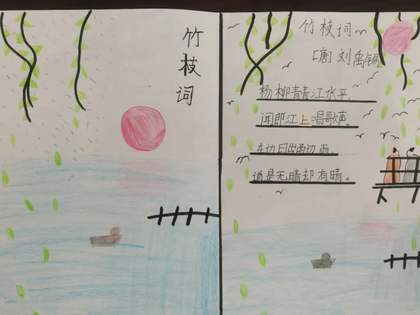 竹枝词
竹枝词
[唐]刘禹锡
杨柳青青江水平，
闻郎江上唱歌声。
东边日出西边雨，
道是无晴却有晴。